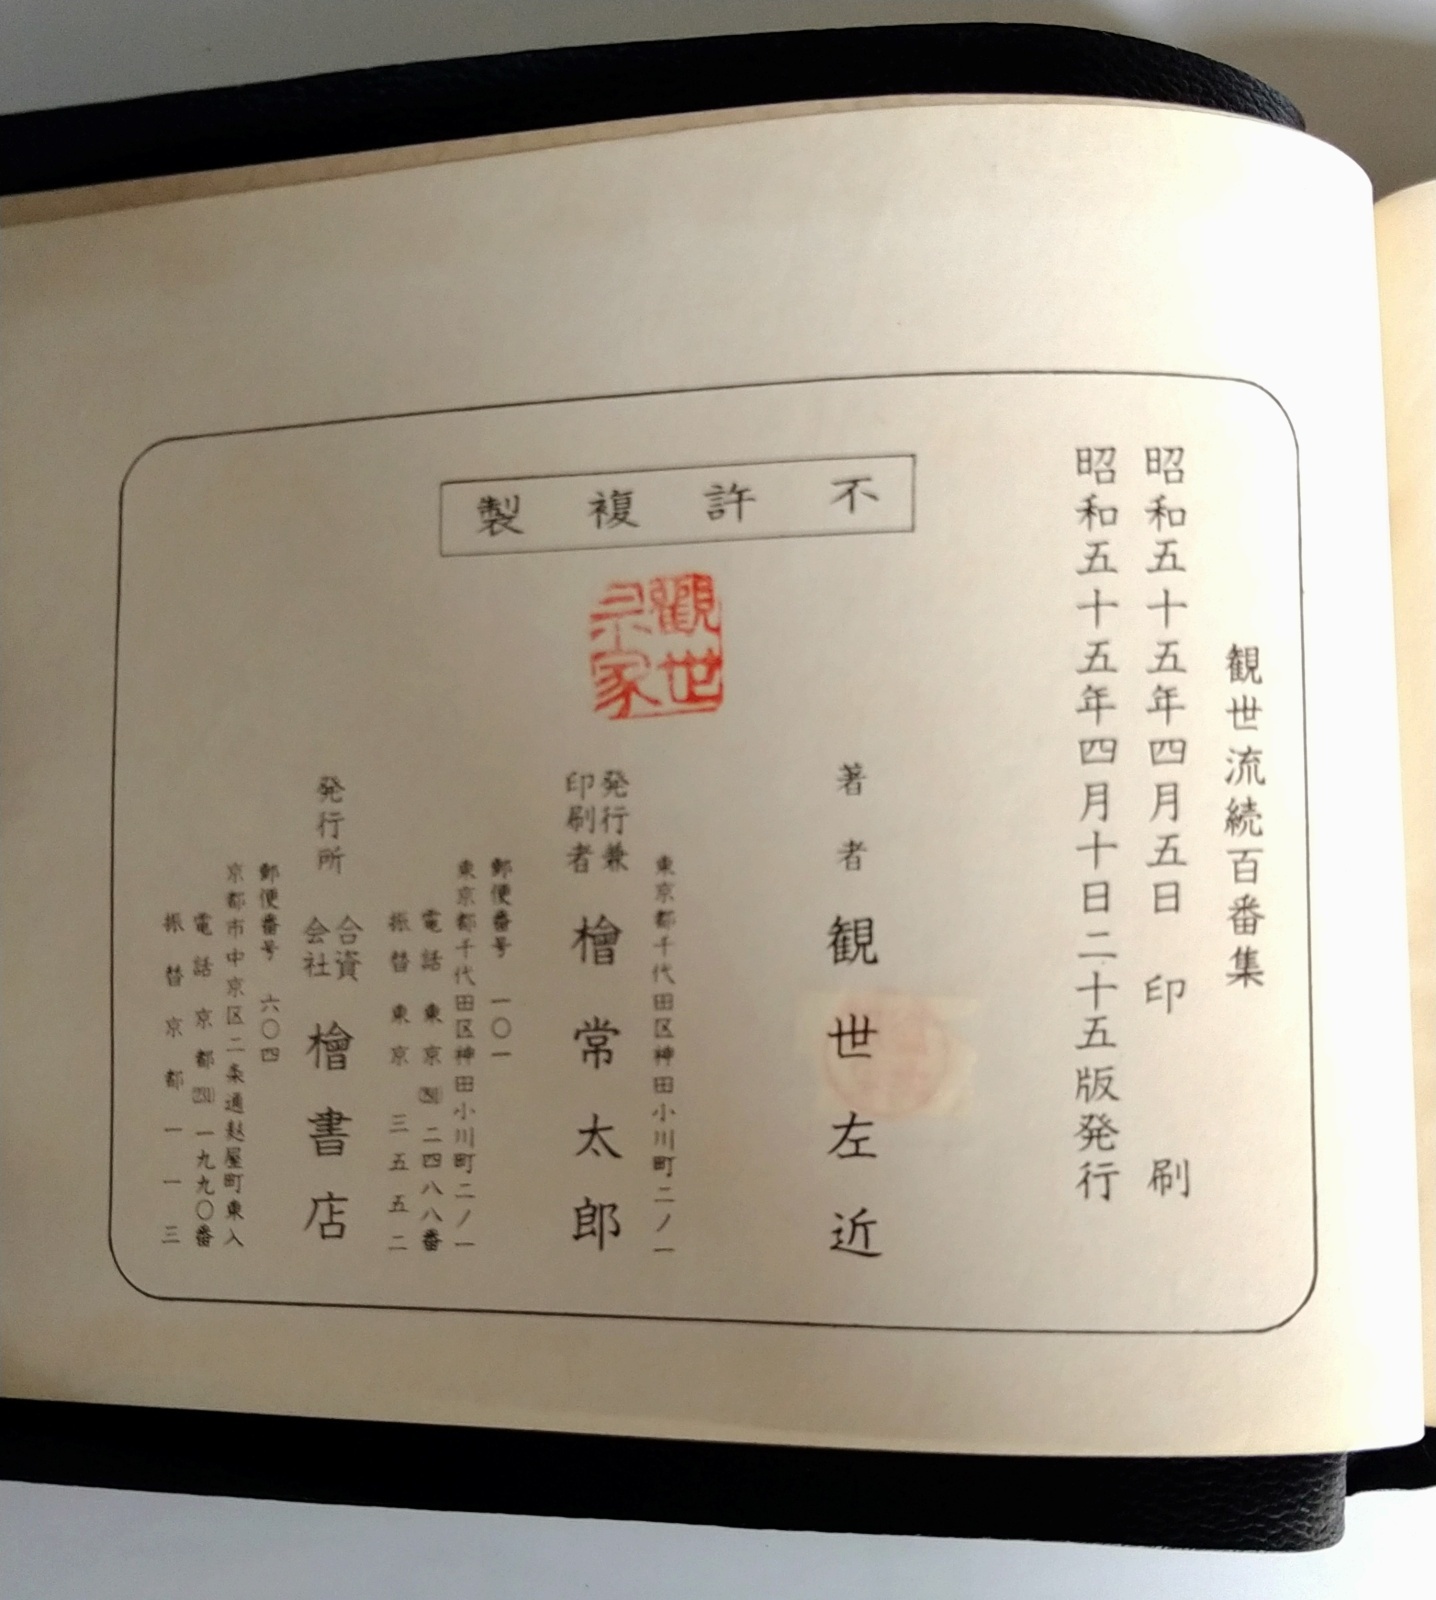 観世流続百番集
昭和五十五年四月五日 印刷
昭和五十五年四月十日二十五版発行
不許複製
觀世宗家
著者 観世左近
東京都千代田区神田小川町二ノ一
発行兼
印刷者
檜常太郎
郵便番号 一〇一
東京都千代田区神田小川町二ノ一
電話東京 二四八八番
振替東京三五五二
発行所
合資
会社
檜書店
郵便番号 六〇四
京都市中京区二条通麸屋町東入
電話京都(231)一九九〇番
振替京都一一三